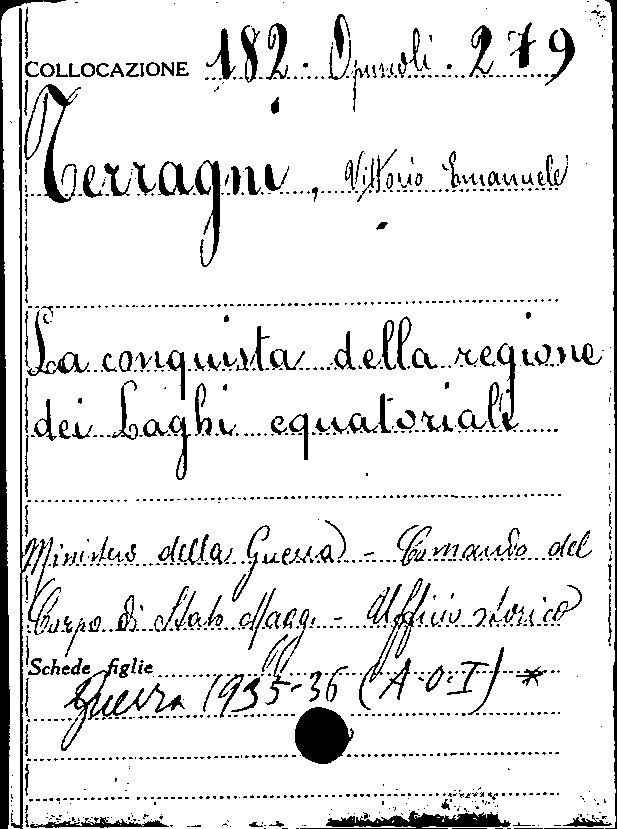 COLLOCAZIONE 182. Opuscoli. 279
Terragni, Vittorio Emanuele
La conquista della regione
dei Laghi equatoriali
Ministero della Guerra - Comando del
Corpo di Stato Magg. - Ufficio storico
Schede figlie
Guerra 1935-36 (A.O.I) *